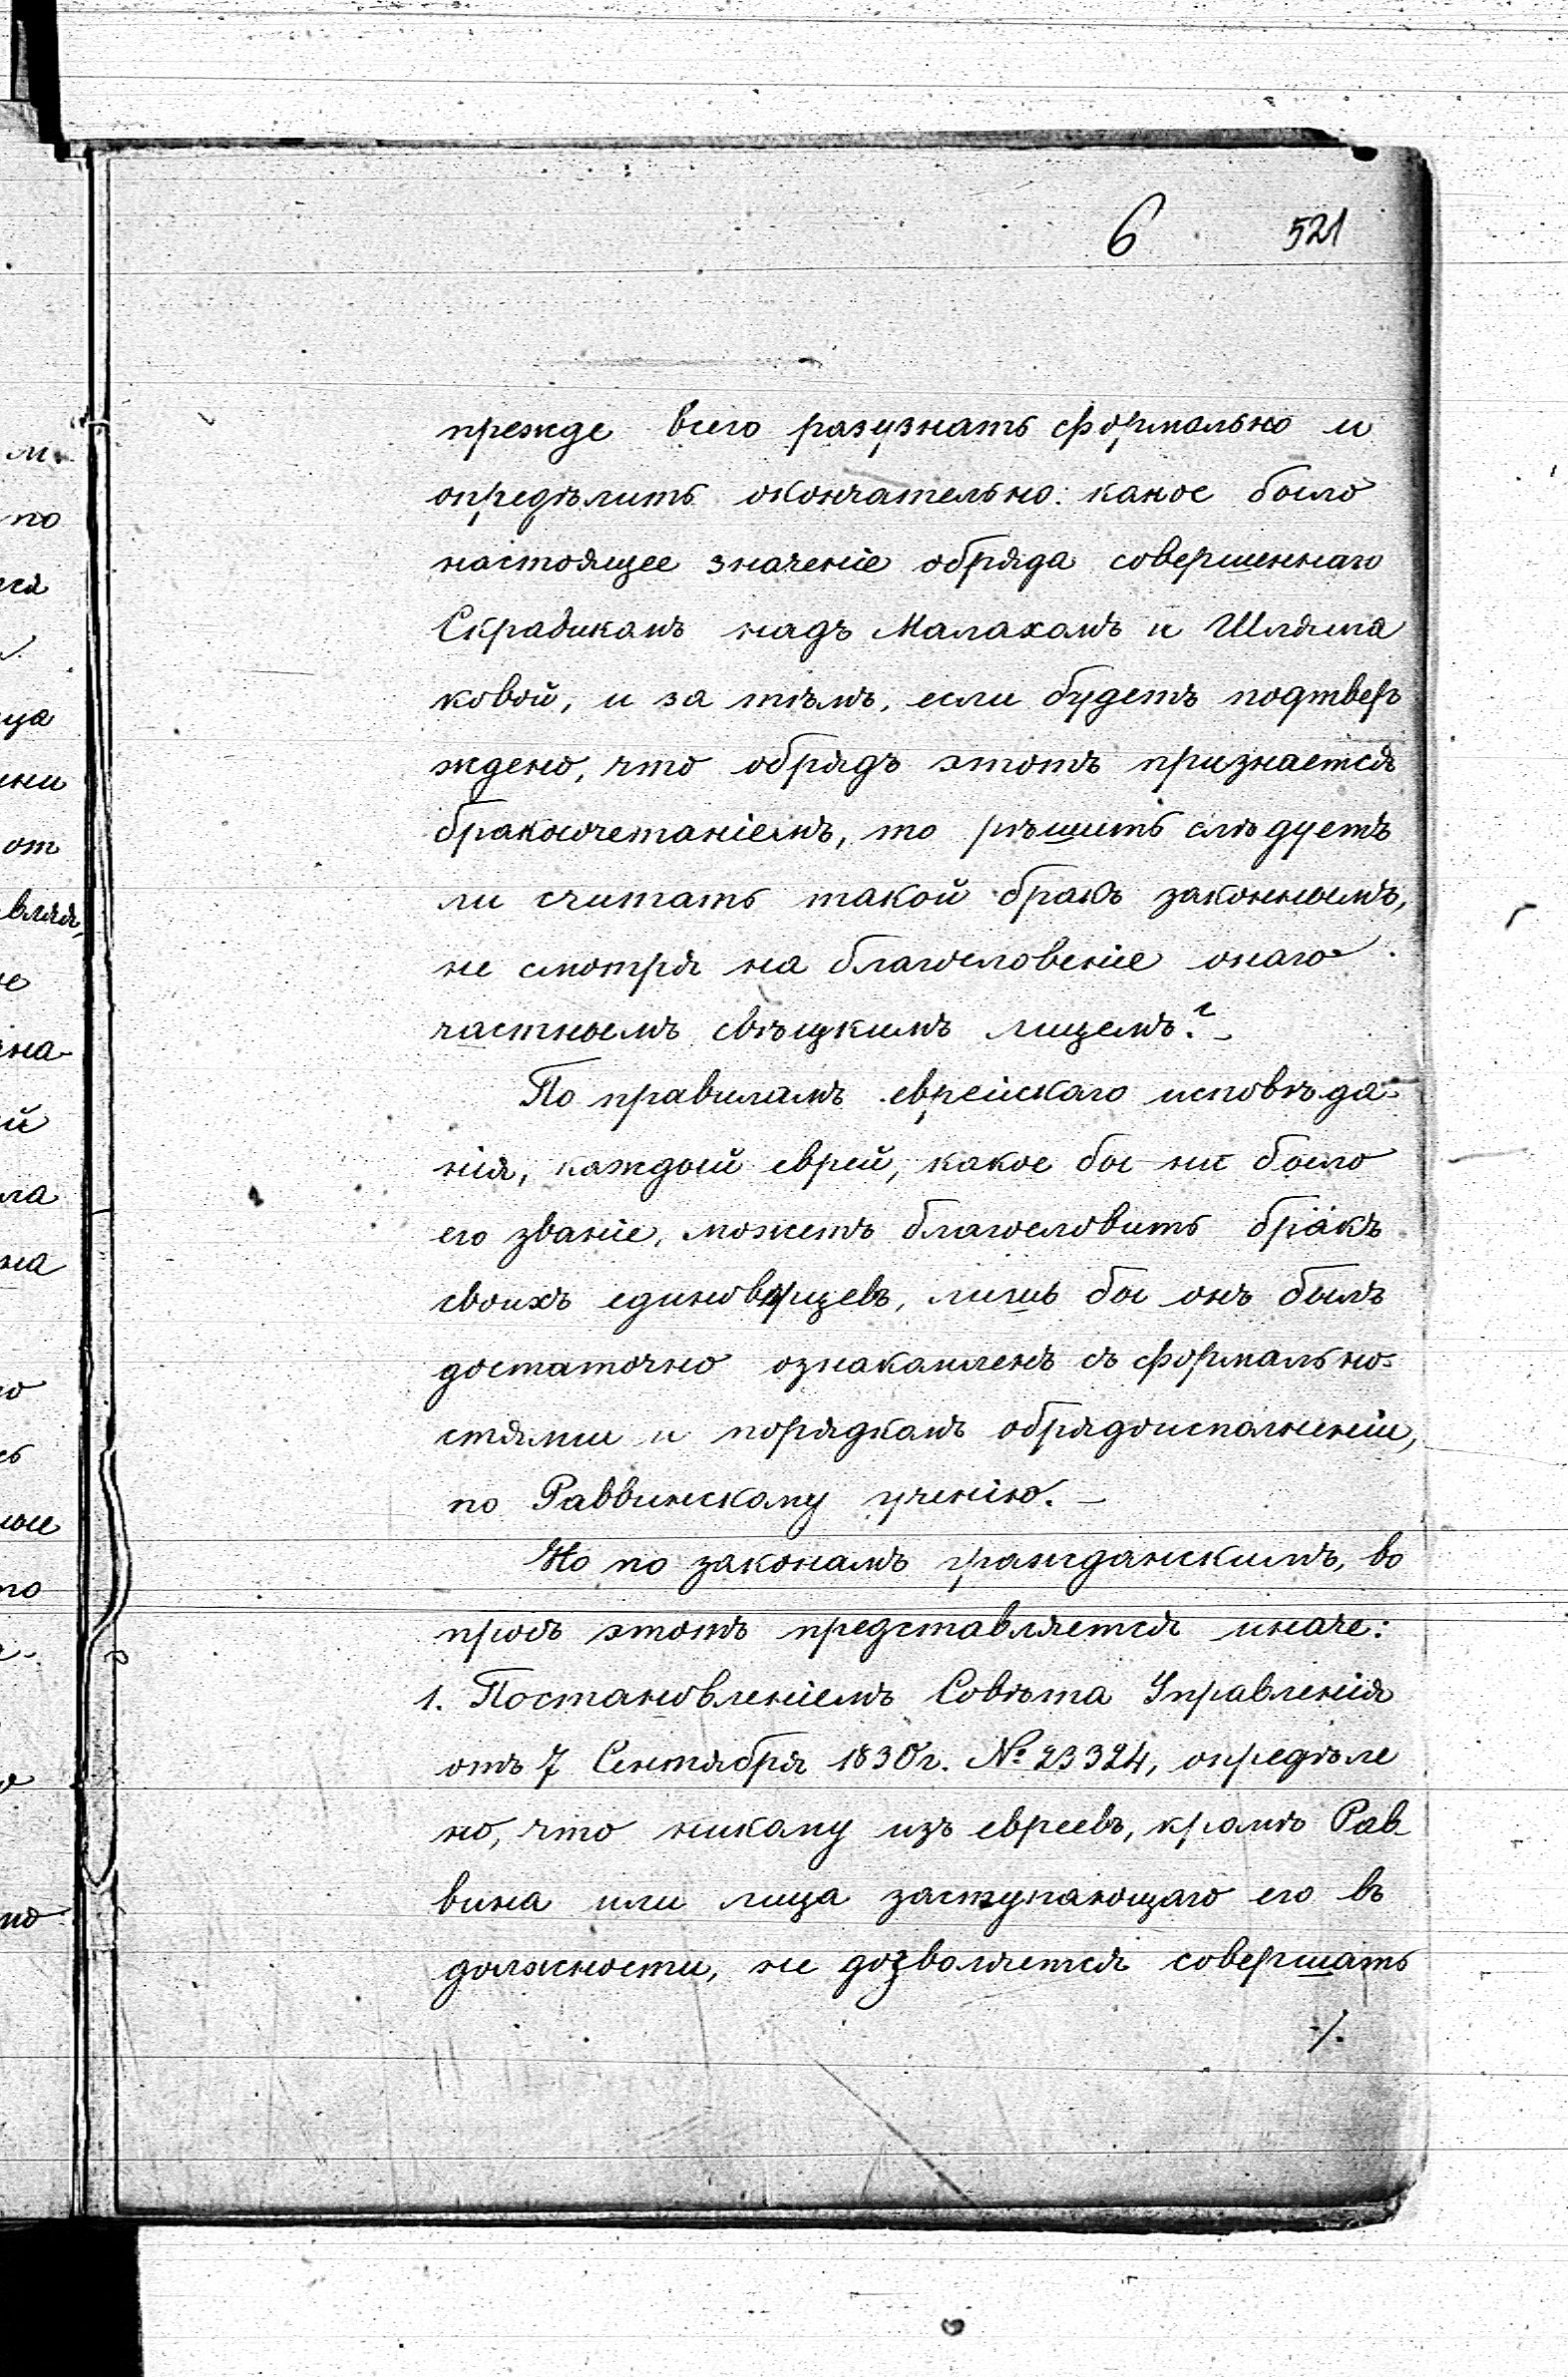 6 521
прежде всего разузнать формально и
опредѣлить окончательно: какое было
настоящее значеніе обряда совершеннаго
Скрадикомъ надъ Малахомъ и Шляма
ковой, и за тѣмъ, если будетъ подтвер
ждено, что обрядъ этотъ признается
бракосочетаніемъ, то рѣшить слѣдуетъ
ли считать такой бракъ законнымъ,
не смотря на благословеніе онаго
частнымъ свѣцкимъ лицемъ? –
По правиламъ еврейскаго исповѣда-
нія, каждый еврей, какое бы ни было
его званіе, можетъ благословить бракъ
своихъ единоверцевъ, лишь бы онъ былъ
достаточно ознакамленъ съ формально-
стями и порядкомъ обрядоисполненіи,
по Раввинскому ученію. –
Но по законамъ гражданскимъ, во
просъ этотъ представляется иначе:
1. Постановленіемъ Совѣта Управленія
отъ 7 Сентября 1830 г. № 23324, опредѣле
но, что никому изъ евреевъ, кромѣ Рав-
вина или лица заступающаго его въ
должности, не дозволяется совершать
./.